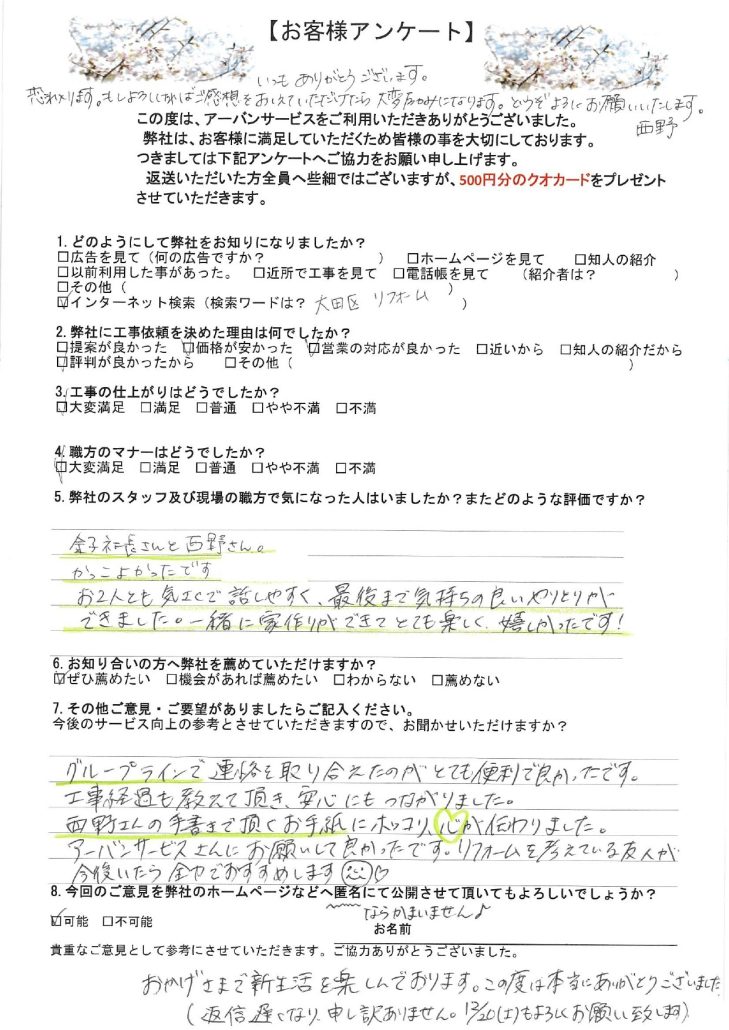 【お客様アンケート】
いつもありがとうございます。
恐れ入ります。もしよろしければご感想をおしえていただけたら大変励みになります。どうぞよろしくお願いいたします。
西野
この度は、アーバンサービスをご利用いただきありがとうございました。
弊社は、お客様に満足していただくため皆様の事を大切にしております。
つきましては下記アンケートへご協力をお願い申し上げます。
返送いただいた方全員へ些細ではございますが、500円分のクオカードをプレゼント
させていただきます。
1. どのようにして弊社をお知りになりましたか？
□広告を見て（何の広告ですか？ ） □ホームページを見て □知人の紹介
□以前利用した事があった。 □近所で工事を見て □電話帳を見て （紹介者は？ ）
□その他（ ）
☑インターネット検索（検索ワードは？ 大田区 リフォーム ）
2. 弊社に工事依頼を決めた理由は何でしたか？
☑提案が良かった ☑価格が安かった ☑営業の対応が良かった □近いから □知人の紹介だから
☑評判が良かったから □その他（ ）
3. 工事の仕上がりはどうでしたか？
☑大変満足 □満足 □普通 □やや不満 □不満
4. 職方のマナーはどうでしたか？
☑大変満足 □満足 □普通 □やや不満 □不満
5. 弊社のスタッフ及び現場の職方で気になった人はいましたか？またどのような評価ですか？
金子社長さんと西野さん。
かっこよかったです
お2人とも気さくで話しやすく、最後まで気持ちの良いやりとりが
できました。一緒に家作りができてとても楽しく、嬉しかったです！
6. お知り合いの方へ弊社を薦めていただけますか？
☑ぜひ薦めたい □機会があれば薦めたい □わからない □薦めない
7. その他ご意見・ご要望がありましたらご記入ください。
今後のサービス向上の参考とさせていただきますので、お聞かせいただけますか？
グループラインで連絡を取り合えたのがとても便利で良かったです。
工事経過も教えて頂き、安心にもつながりました。
西野さんの手書きで頂くお手紙にホッコリ、心が伝わりました。
アーバンサービスさんにお願いして良かったです。リフォームを考えている友人が
今後いたら全力でおすすめします
8. 今回のご意見を弊社のホームページなどへ匿名にて公開させて頂いてもよろしいでしょうか？
☑可能 □不可能
ならかまいません♪
お名前
貴重なご意見として参考にさせていただきます。ご協力ありがとうございました。
おかげさまで新生活を楽しんでおります。この度は本当にありがとうございました
（返信遅くなり、申し訳ありません。12/20（土）もよろしくお願い致します）